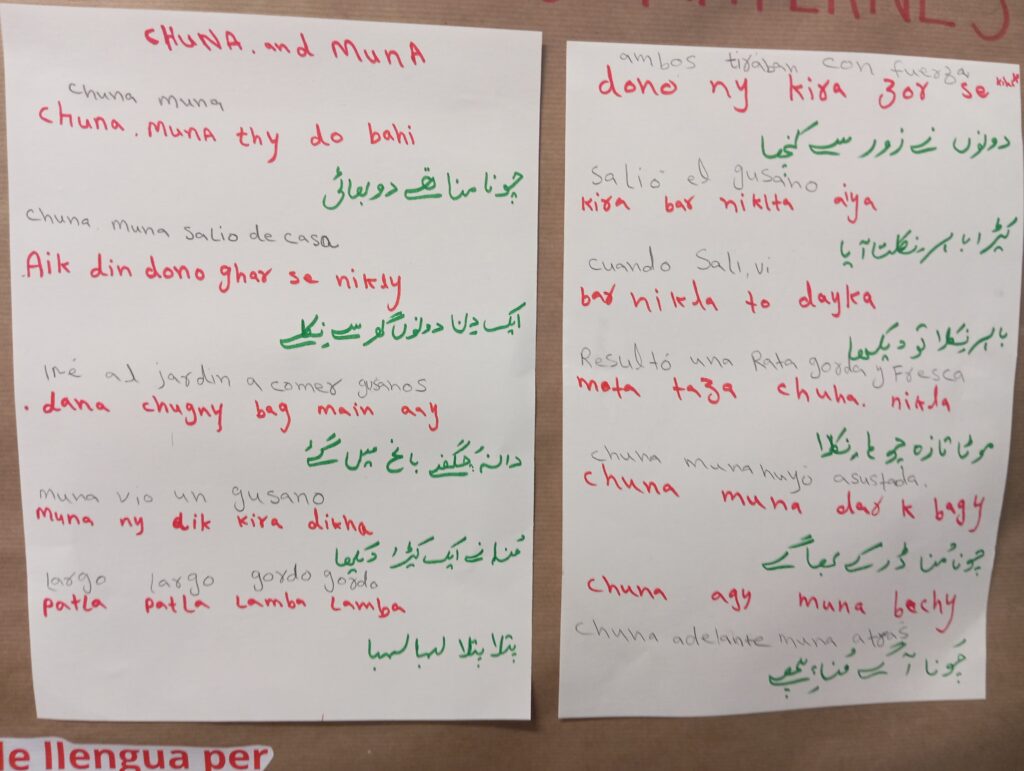 MATERNES
CHUNA. and MUNA
chuna muna
CHUNA. MUNA thy do bahi
چونا منا تھے دو بھائی
chuna. muna salio de casa
Aik din dono ghar se nikly
ایک دن دونوں گھر سے نکلے
iré al jardin a comer gusanos
. dana chugny bag main aay
دانہ چگنے باغ میں گئے
muna vio un gusano
Muna ny aik kira dikha
مُنا نے ایک کیڑا دیکھا
largo largo gordo gordo
patla patla Lamba Lamba
پتلا پتلا لمبا لمبا
ambos tiraban con fuerza
dono ny kira zor se
دونوں نے زور سے کنچھا
salió el gusano
kira bar niklta aiya
کیڑا باہر نکلتا آیا
cuando Sali, vi
bar nikla to dayka
باہر نکلا تو دیکھا
Resultó una Rata gorda y Fresca
mota taza chuha. nikla
موٹا تازہ چوہا نکلا
chuna muna huyó asustada.
chuna muna dar k bagy
چونا مُنا ڈر کے بھاگے
chuna agy muna bechy
chuna adelante muna atrás
چونا آگے مُنا پیچھے
de llengua per